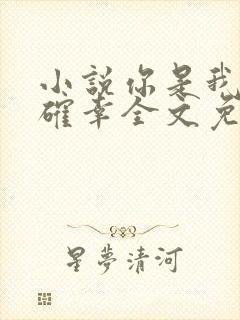 小說你是我
確幸全文免
星夢清河